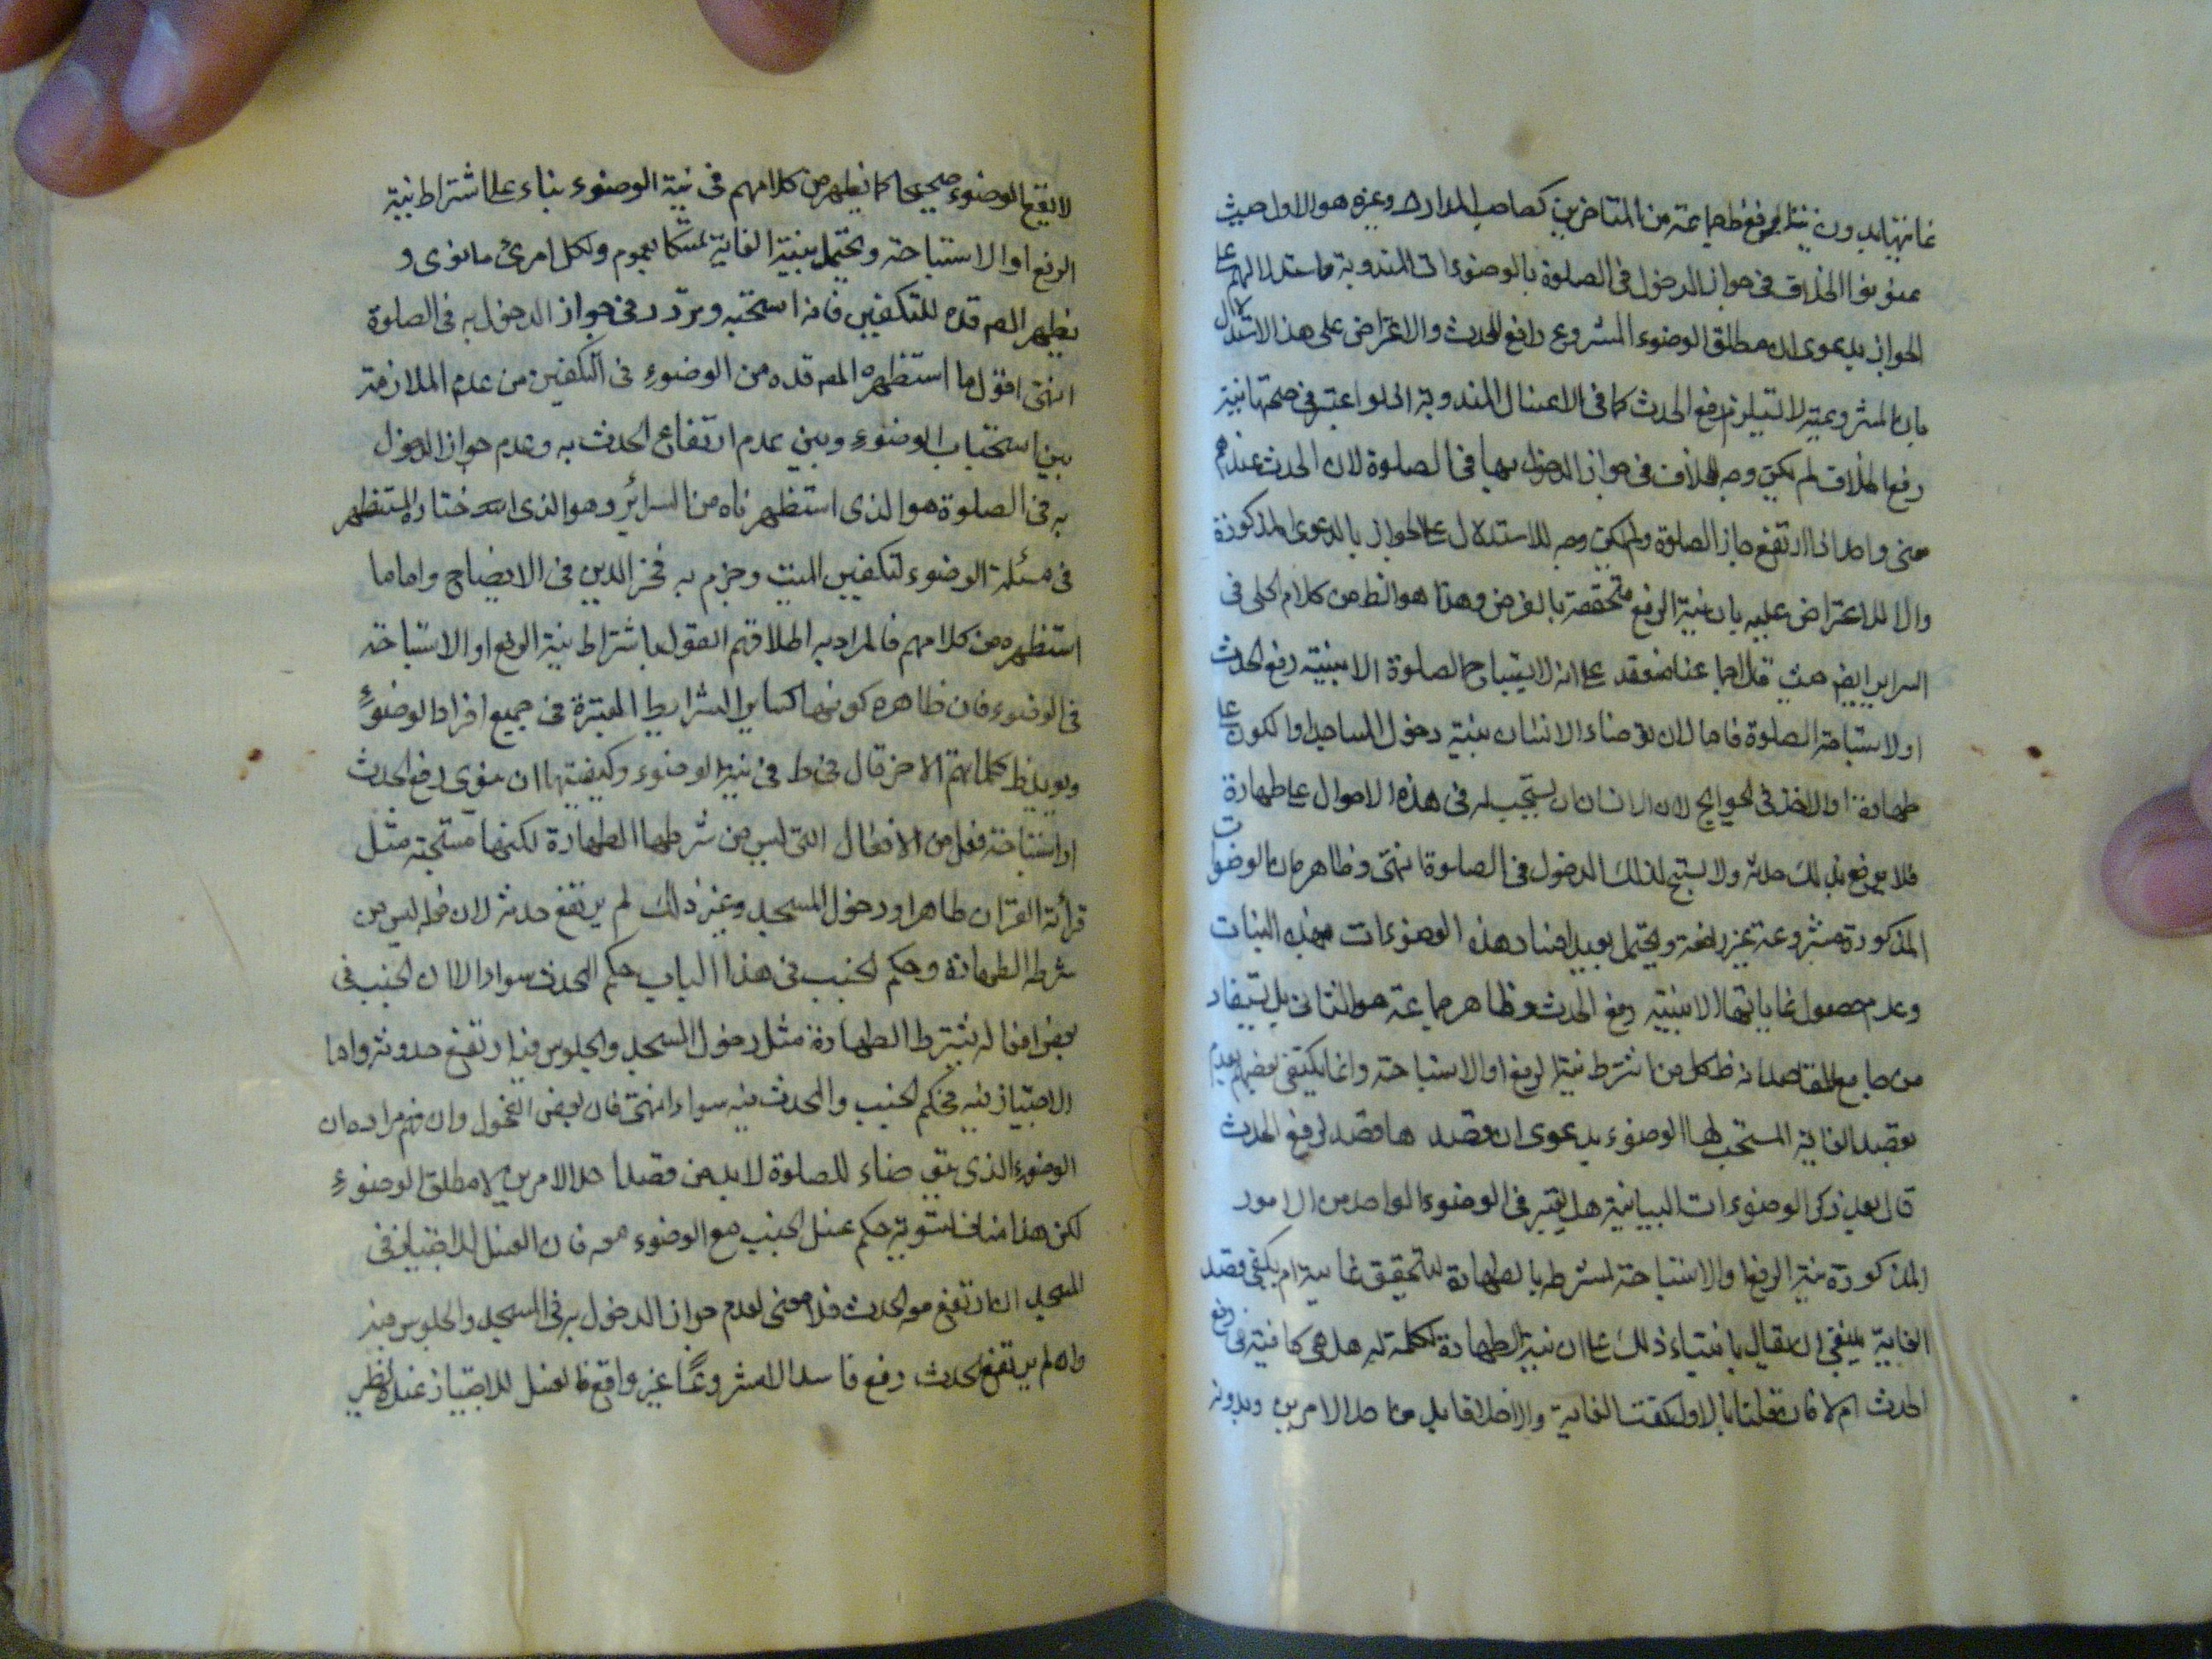 غايتها بدون نيته الرفع ظ جماعة من المتاخرين كصاحب المدارك وغيره هو الاول حيث
عنونوا الخلاف فى جواز الدخول فى الصلوة بالوضوءات المندوبة واستدلالهم على
الجواز بدعوى ان مطلق الوضوء المشروع رافع للحدث والاعتراض على هذا الاستدلال
بان المشروعية لا تستلزم رفع الحدث كما فى الاغسال المندوبة اذ لو اعتبر فى صحتها نية
رفعا لخلاف لم يكن وجه للخلاف فى جواز الدخول بها فى الصلوة لان الحدث عندهم
معنى واحد اذا ارتفع جاز الصلوة ولم يكن وجه للاستدلال على الجواز بالدعوى المذكورة
ولا للاعتراض عليه بان نية الرفع متحققة بالفرض وهذا هو الظ من كلام الحلى فى
السراير ايضم حيث قال اجماعنا منعقد على انه لا يستباح الصلوة الا بنية رفع الحدث
او لاستباحة الصلوة فاما ان توضاء الانسان بنية دخول المساجد او الكون على
طهارة او الاخذ فى الحوايج لان الانسان يستحب له فى هذه الاحوال على طهارة
فلا يرتفع بذلك حدثه ولا يستبيح بذلك الدخول فى الصلوة انتهى وظاهره ان الوضوات
المذكورة مشروعة غير رافعة ويحتمل بعيدا فساد هذه الوضوءات بهذه النيات
وعدم حصول غاياتها الا بنية رفع الحدث وظاهر جماعة هو الثانى بل يستفاد
من جامع المقاصد انه ظ كل من اشترط نية الرفع او الاستباحة وانما يكتفى بعضهم
بقصد الغاية المستحب لها الوضوء بدعوى ان قصدها قصد لرفع الحدث
قال بعد ذكر الوضوءات البيانية هل يعتبر فى الوضوء الواحد من الامور
المذكورة نية الرفع او الاستباحة لمشرط بالطهارة ليتحقق غايته ام يكفى قصد
الغاية ينبغى ان يقال بابتناء ذلك على ان نية الطهارة مكملة له هل هى كافية فى رفع
الحدث ام لا فان قلنا بالاول كفت الغاية والا فلا بد من احد الامرين وبدونه
لا يقع الوضوء صحيحا كما يظهر من كلامهم فى نية الوضوء بناء على اشتراط نية
الرفع او الاستباحة ويحتمل بنية الغاية تمسكا بعموم ولكل امرئ ما نوى و
يظهر المص قده للتكفين فانه استحبه وتردد فى جواز الدخول به فى الصلوة
انتهى اقول ما استظهره المص قده من الوضوء فى التكفين من عدم الملازمة
بين استحباب الوضوء وبين عدم ارتفاع الحدث به وعدم جواز الدخول
به فى الصلوة هو الذى استظهرناه من السرائر وهو الذى اختاره المستظهر
فى مسئلة الوضوء لتكفين الميت وجزم به فخر الدين فى الايضاح واما ما
استظهره من كلامهم فالمراد به اطلاقهم القول باشتراط نية الرفع او الاستباحة
فى الوضوء فان ظاهره كونها كساير الشرايط المعتبرة فى جميع افراد الوضوءِ
ويؤيد ظ كلماتهم الاخر قال فى ط فى نية الوضوء وكيفيتها ان ينوى رفع الحدث
او استباحة فعل من الافعال التى ليس من شرطها الطهارة لكنها مستحبة مثل
قرائة القران طاهرا ودخول المسجد وغير ذلك لم يرتفع حدثه لان فعله ليس من
شرطه الطهارة وحكم الجنب فى هذا الباب حكم المحدث سواء الا ان الجنب فى
بعض افعاله يشترط الطهارة مثل دخول المسجد والجلوس فيه ارتفع حدوثه واما
الاجتياز فيه فحكم الجنب والمحدث فيه سواء انتهى فان بعض الفحول وان فهم مراده ان
الوضوء الذى يتوضاء للصلوة لا بد من قصد احد الامرين لا مطلق الوضوءِ
لكن هذا مناف لتسوية حكم غسل الجنب مع الوضوء معه فان الغسل للاجتياز فى
المسجد ان ارتفع معه الحدث فلا معنى لعدم جواز الدخول به فى المسجد والجلوس فيه
وان لم يرتفع الحدث رفع فاسد الا مشروعًا غير واقع فالغسل للاجتياز عنده نظير